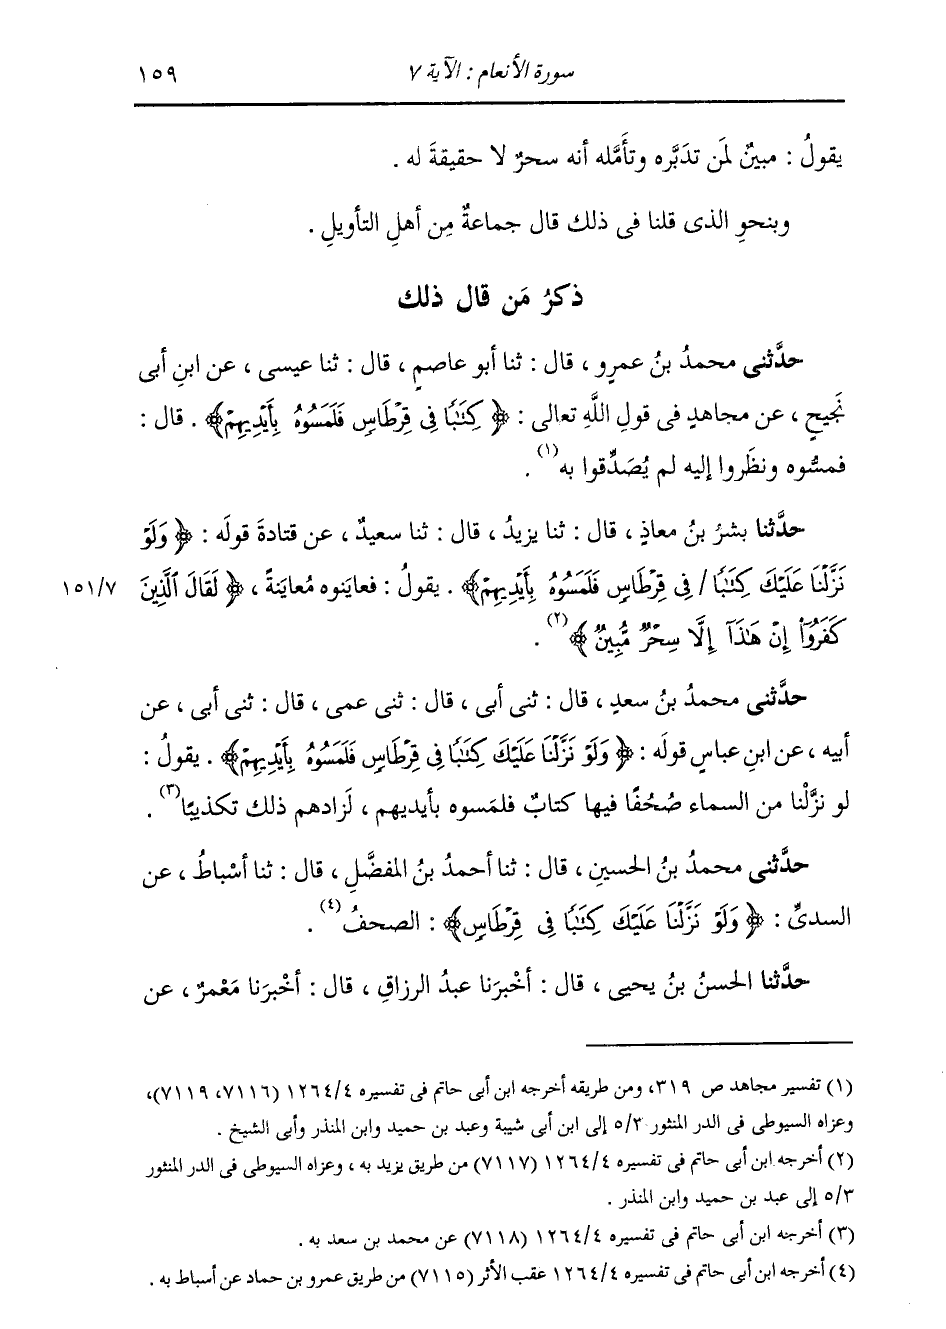 سورة الأنعام : الآية ٧
١٥٩
يقولُ : مبينٌ لمَن تدبَّره وتأَمَّله أنه سحرٌ لا حقيقةَ له .
وبنحوِ الذى قلنا فى ذلك قال جماعةٌ مِن أهلِ التأويلِ .
ذكرُ مَن قال ذلك
حدَّثنى محمدُ بنُ عمرٍو ، قال : ثنا أبو عاصمٍ ، قال : ثنا عيسى ، عن ابنِ أبى
نَجيحٍ ، عن مجاهدٍ فى قولِ اللَّهِ تعالى : ﴿ كِتَٰبًا فِى قِرْطَاسٍ فَلَمَسُوهُ بِأَيْدِيهِمْ﴾ . قال :
فمسُّوه ونظَروا إليه لم يُصَدِّقوا به(١) .
حدَّثنا بشرُ بنُ معاذٍ ، قال : ثنا يزيدُ ، قال : ثنا سعيدٌ ، عن قتادةَ قولَه : ﴿ وَلَوْ
نَزَّلْنَا عَلَيْكَ كِتَٰبًا / فِى قِرْطَاسٍ فَلَمَسُوهُ بِأَيْدِيهِمْ﴾ . يقولُ : فعايَنوه مُعاينَةً ، ﴿ لَقَالَ ٱلَّذِينَ
١٥١/٧
كَفَرُوٓا۟ إِنْ هَٰذَآ إِلَّا سِحْرٌ مُّبِينٌ ﴾(٢) .
حدَّثنى محمدُ بنُ سعدٍ ، قال : ثنى أبى ، قال : ثنى عمى ، قال : ثنى أبى ، عن
أبيه ، عن ابنِ عباسٍ قولَه : ﴿ وَلَوْ نَزَّلْنَا عَلَيْكَ كِتَٰبًا فِى قِرْطَاسٍ فَلَمَسُوهُ بِأَيْدِيهِمْ﴾ . يقولُ :
لو نزَّلْنا من السماء صُحُفًا فيها كتابٌ فلمَسوه بأيديهم ، لَزادهم ذلك تكذيبًا(٣) .
حدَّثنى محمدُ بنُ الحسينِ ، قال : ثنا أحمدُ بنُ المفضَّلِ ، قال : ثنا أسْباطُ ، عن
السدىِّ : ﴿ وَلَوْ نَزَّلْنَا عَلَيْكَ كِتَٰبًا فِى قِرْطَاسٍ﴾ : الصحفُ(٤) .
حدَّثنا الحسنُ بنُ يحيى ، قال : أخْبرَنا عبدُ الرزاقِ ، قال : أخْبرَنا مَعْمرٌ ، عن
(١) تفسير مجاهد ص ٣١٩، ومن طريقه أخرجه ابن أبى حاتم فى تفسيره ١٢٦٤/٤ (٧١١٦، ٧١١٩)،
وعزاه السيوطى فى الدر المنثور ٥/٣ إلى ابن أبى شيبة وعبد بن حميد وابن المنذر وأبى الشيخ .
(٢) أخرجه ابن أبى حاتم فى تفسيره ١٢٦٤/٤ (٧١١٧) من طريق يزيد به ، وعزاه السيوطى فى الدر المنثور
٥/٣ إلى عبد بن حميد وابن المنذر .
(٣) أخرجه ابن أبى حاتم فى تفسيره ١٢٦٤/٤ (٧١١٨) عن محمد بن سعد به .
(٤) أخرجه ابن أبى حاتم فى تفسيره ١٢٦٤/٤ عقب الأثر (٧١١٥) من طريق عمرو بن حماد عن أسباط به .